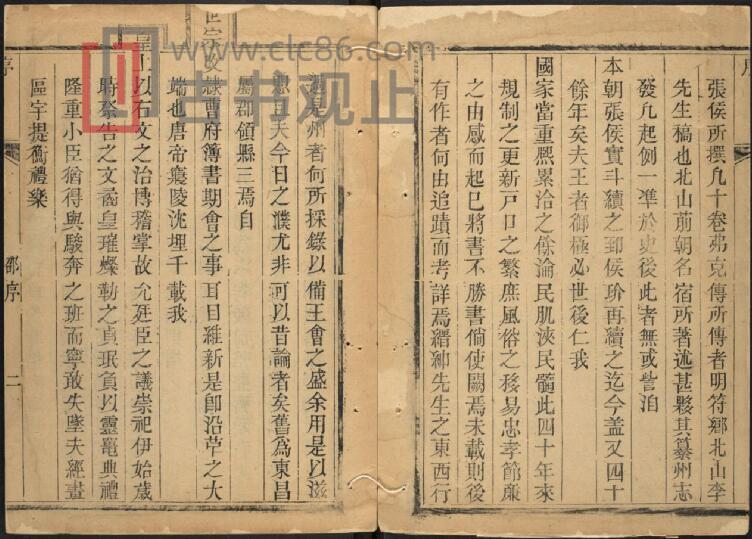 序
張侯所撰凡十卷弗克傳所傳者明符鄉北山李
先生稿也北山前朝名宿所著述甚夥其纂州志
發凡起例一準於史後此者無或訾洎
本朝張侯實斗續之郅侯玠再續之迄今蓋又四十
餘年矣夫王者御極必世後仁我
國家當重熙累洽之餘淪民肌浹民髓此四十年來
規制之更新戸口之繁庶風俗之移易忠孝節廉
之由感而起已將書不勝書倘使闕焉未載則後
有作者何由追蹟而考詳焉縉紳先生之東西行
過是州者何所採錄以備王會之盛余用是以滋
懋且夫今日之濮尤非可以昔論者矣舊爲東昌
屬郡領縣三焉自
世宗改隷曹府簿書期會之事耳目維新是卽沿革之大
端也唐帝慶陵沈埋千載我
皇上以右文之治博稽掌故允廷臣之議崇祀伊始歲
時祭告之文矞皇璀燦勒之貞珉負以靈鼂典禮
隆重小臣猶得與駿奔之班而寧敢失墜夫經畫
區宇提衡禮樂
序
郅序
二
www.clc86.com
古书观止